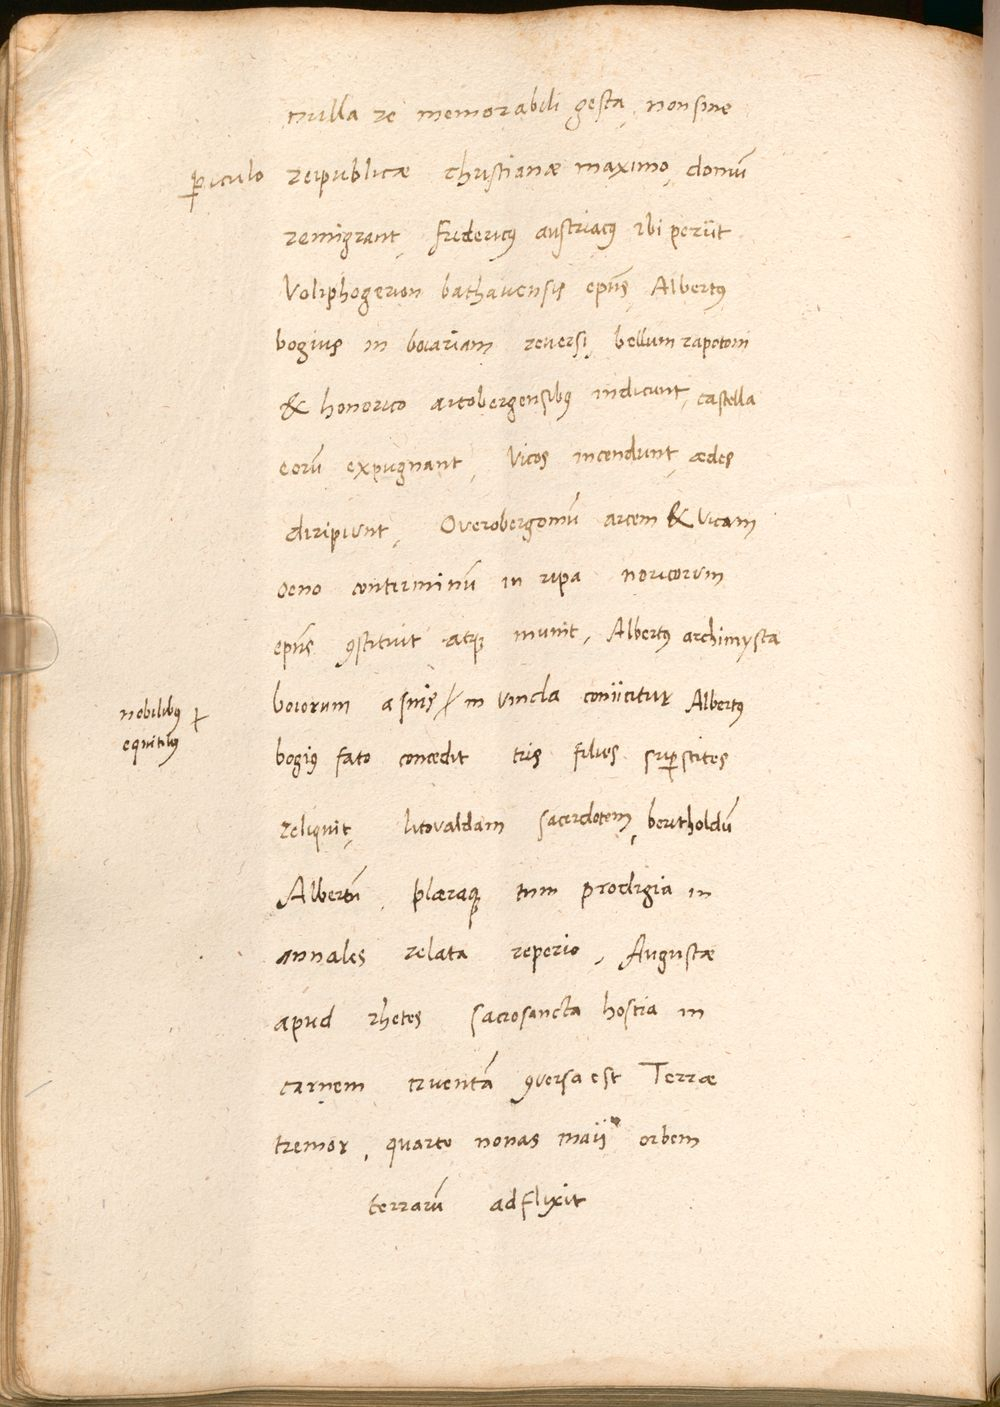 nulla re memorabili gesta, non sine
ꝑiculo reipublicæ christianæ maximo, domū
remigrant, fridericꝰ austriacꝰ ibi periit
Voliphogerion bathavensis epūs, Albertꝰ
bogius in boiariam reversi, bellum rapotoni
& honorico artobergensibꝰ indicunt, castella
eorū expugnant, Vicos incendunt, ædes
diripiunt, Overobergomū arcem & vicam
oeno conterminū in ripa noricorum
epūs ꝯstituit atqꝫ munit, Albertꝰ archimysta
boiorum a suis ⌿ in vincla coniicitur Albertꝰ
nobilibꝰ ⌿
equitibꝰ
bogiꝰ fato concedit tris filios suꝑstites
reliquit, litovaldam sacerdotem, bertholdū
Albertū, plæraqꝫ tum prodigia in
annales relata reperio, Augustæ
apud rhetes sacrosancta hostia in
carnem cruentā ꝯversa est Terræ
tremor, quarto nonas maii orbem
terrarū adflixit